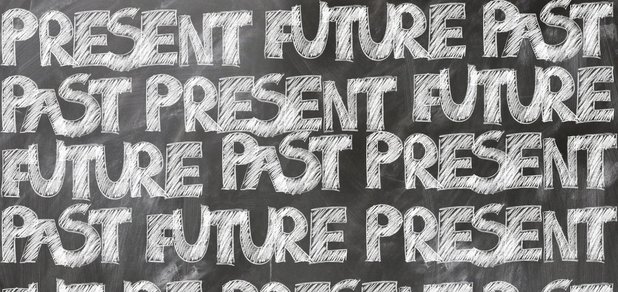 PRESENT FUTURE PAST
PAST PRESENT FUTURE
FUTURE PAST PRESENT
PAST FUTURE PRESENT
FUTURE PRESENT PAST